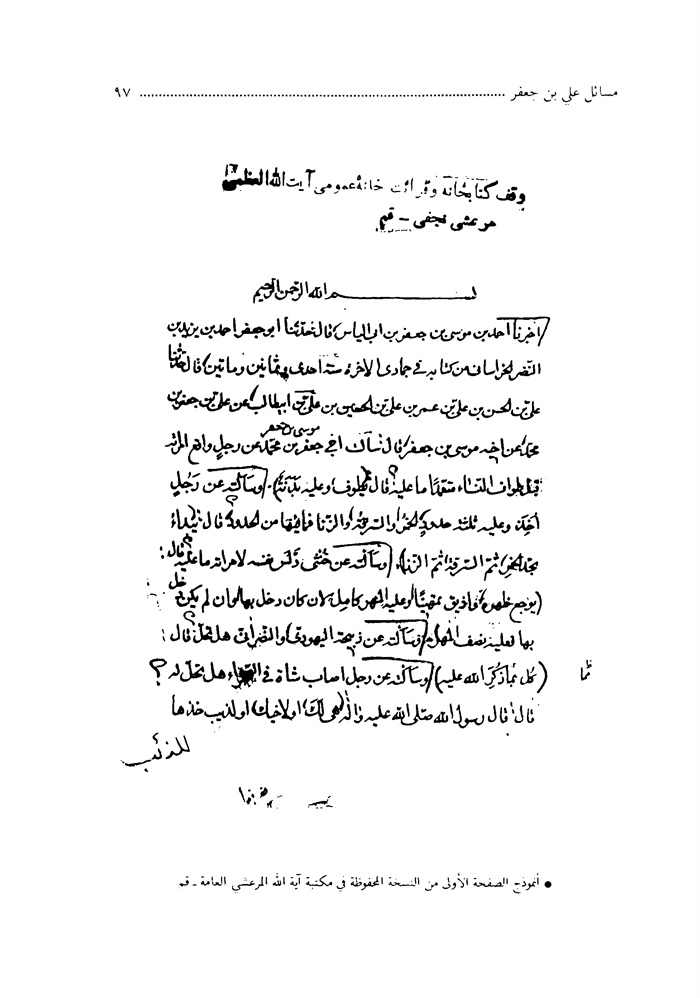 مسائل علي بن جعفر ........................................ ٩٧
وقف كتابخانه وقرائت خانهٔ عمومى آيت الله العظمى
مرعشى نجفى - قم
بسم الله الرحمن الرحيم
اخبرنا احمد بن موسى بن جعفر بن ابى الياس قال حدثنا ابو جعفر احمد بن يزيد بن
النضر الخراسانى من كتابه فى جمادى الاخرة سنة احدى وثمانين وماتين قال حدثنا
على بن الحسن بن على بن عمر بن على بن الحسين بن على بن ابيطالب عن على بن جعفر بن
محمد عن اخيه موسى بن جعفر قال سألت اخى موسى بن جعفر جعفر بن محمد عن رجل واقع امرأته
قبل طواف النساء متعمدا ما عليه؟ قال يطوف وعليه بدنة وسألته عن رجل
اخذ وعليه ثلثة حدود الخمر والسرقة والزنا فما فيها من الحدود؟ قال: يبداء
بحد الخمر ثم السرقة ثم الزنا. وسألته عن خنثى دلس نفسه لامراته ما عليه؟ قال:
(يوجع ظهره واذيق تمهينا وعليه المهر كاملا ان كان دخل بها وان لم يكن دخل
بها فعليه نصف المهر) وسألته عن ذبيحة اليهودى والنصرانى هل تحل؟ قال:
(كل مما ذكر الله عليه) وسألته عن رجل اصاب شاة فى الصحراء هل تحل له؟
مما
قال: قال رسول الله صلى الله عليه واله هى لك او لاخيك او لذيب خذها
للذئب
● أنموذج الصفحة الأولى من النسخة المحفوظة في مكتبة آية الله المرعشي العامة ـ قم